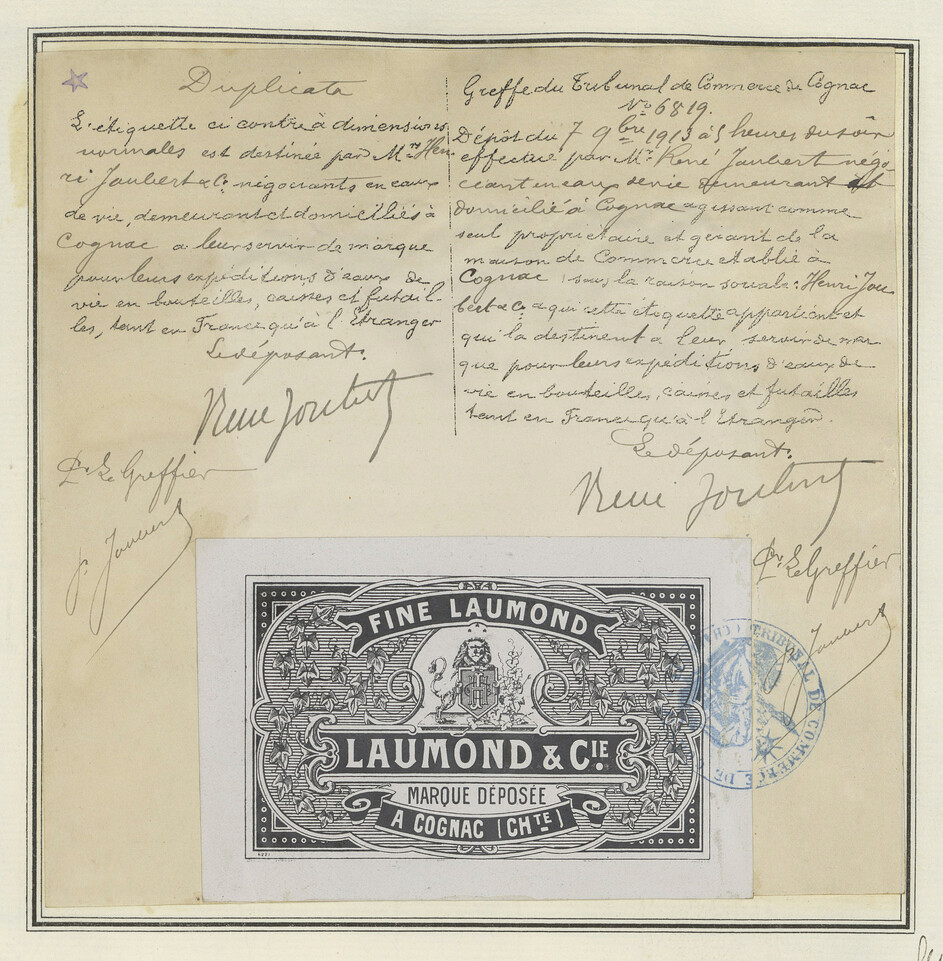 Duplicata
L'étiquette ci contre à dimensions
normales est destinée par M.rs Hen
ri Joubert & Co négociants en eaux
de vie, demeurant et domiciliés à
Cognac a leur servir de marque
pour leurs expéditions d'eaux de
vie en bouteilles, caisses et futail-
les, tant en France qu'à l'Etranger
Le déposant.
René Joubert
Pr Le Greffier
Greffe du Tribunal de Commerce de Cognac
No 6819.
Dépôt du 7 9bre 1913 à 5 heures du soir
effectué par Mr. René Joubert négo
ciant en eaux de vie demeurant et
domicilié à Cognac agissant comme
seul propriétaire et gérant de la
maison de Commerce établie à
Cognac, sous la raison sociale: Henri Jou
bert & Co a qui cette étiquette appartient et
qui la destinent a leur servir de mar
que pour leurs expéditions d'eaux de
vie en bouteilles, caisses et futailles
tant en France qu'à l'Etranger.
Le déposant.
René Joubert
Pr Le Greffier
FINE LAUMOND
LAUMOND & CIE.
MARQUE DÉPOSÉE
A COGNAC (CHTE)
TRIBUNAL DE COMMERCE DE